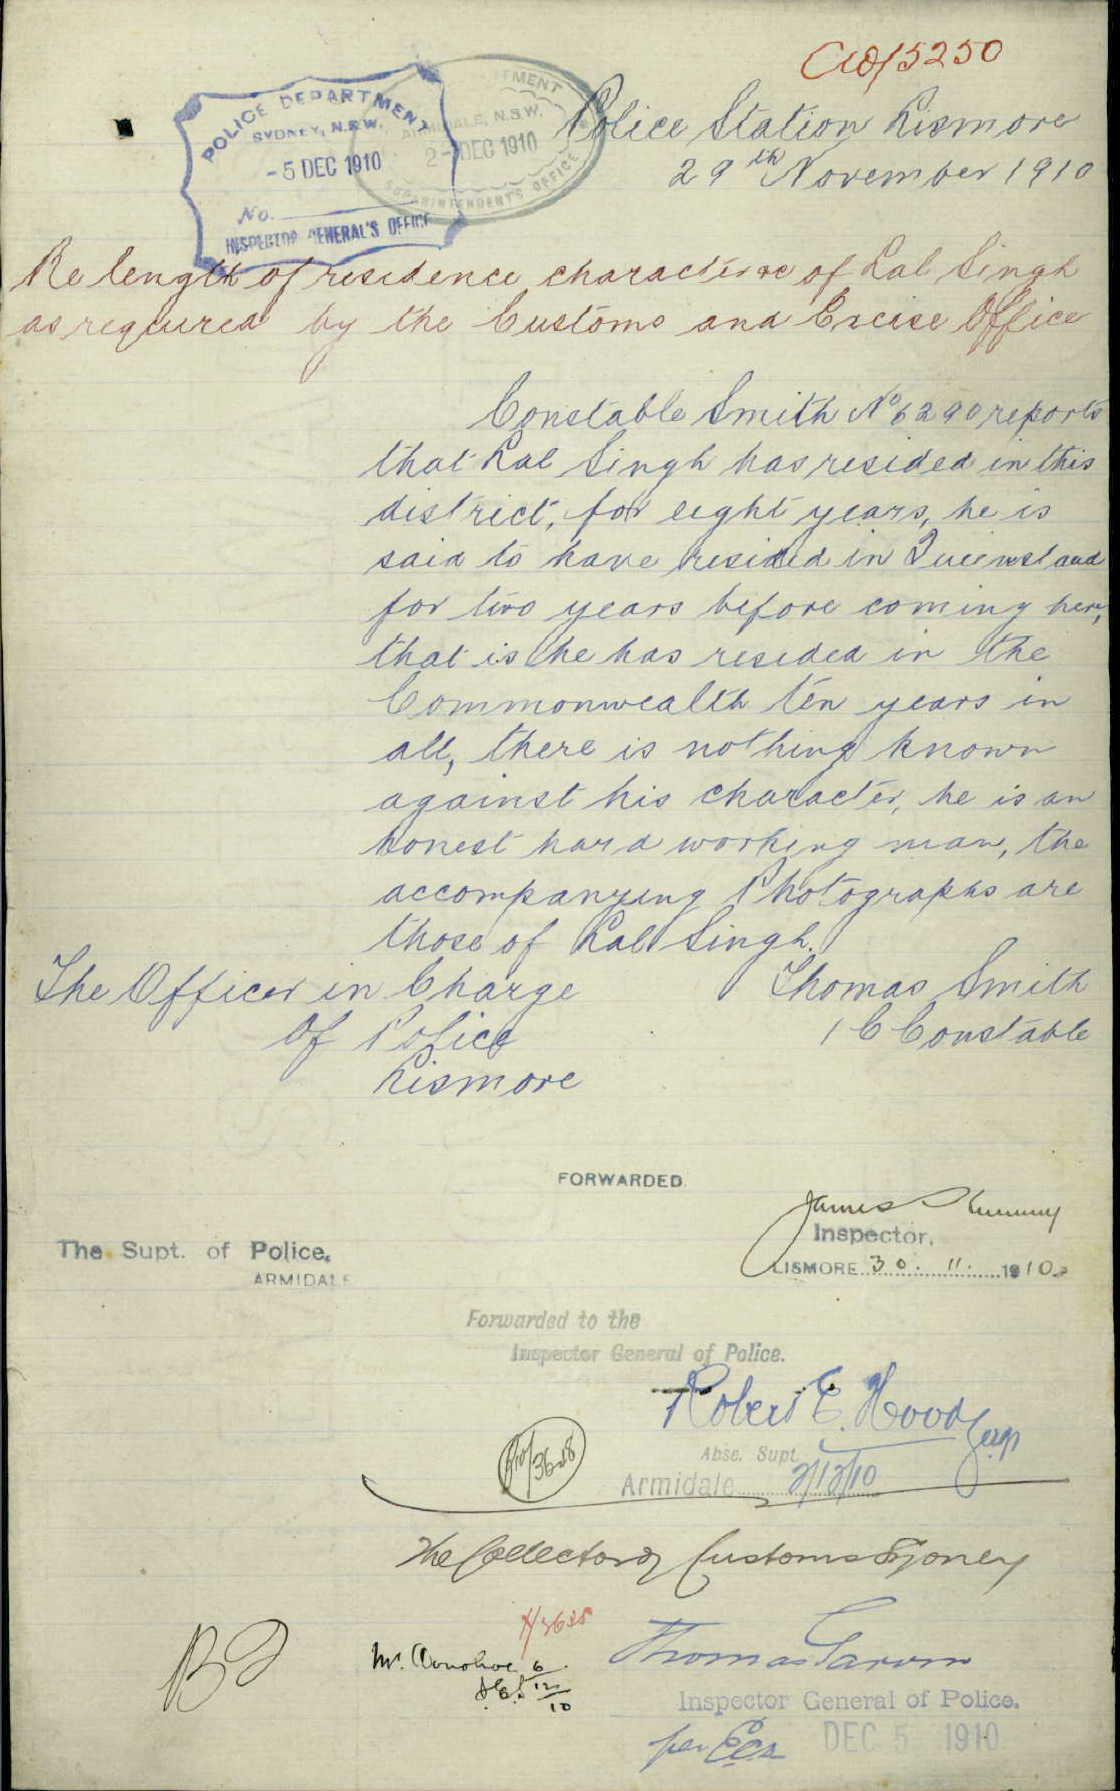 C10/5250
POLICE DEPARTMENT
SYDNEY, N.S.W.
- 5 DEC 1910
No.
INSPECTOR GENERAL'S OFFICE
ARMIDALE, N.S.W.
2 - DEC 1910
SUPERINTENDENT'S OFFICE
Police Station Lismore
29th November 1910
Re length of residence character &c of Lal Singh
as required by the Customs and Excise Office
Constable Smith No 6290 reports
that Lal Singh has resided in this
district, for eight years, he is
said to have resided in Queensland
for two years before coming here,
that is he has resided in the
Commonwealth ten years in
all, there is nothing known
against his character, he is an
honest hard working man, the
accompanying Photographs are
those of Lal Singh.
The Officer in Charge
Of Police
Lismore
Thomas Smith
1 C Constable
FORWARDED
James
Inspector.
LISMORE 30. 11. 1910
The Supt. of Police.
ARMIDALE
Forwarded to the
Inspector General of Police.
Robert E. Hood
Supt
Armidale 2/12/10
The Collector of Customs Sydney
Mr. Donohoe 6
12
10
Thomas Garvin
Inspector General of Police.
per
DEC 5 1910